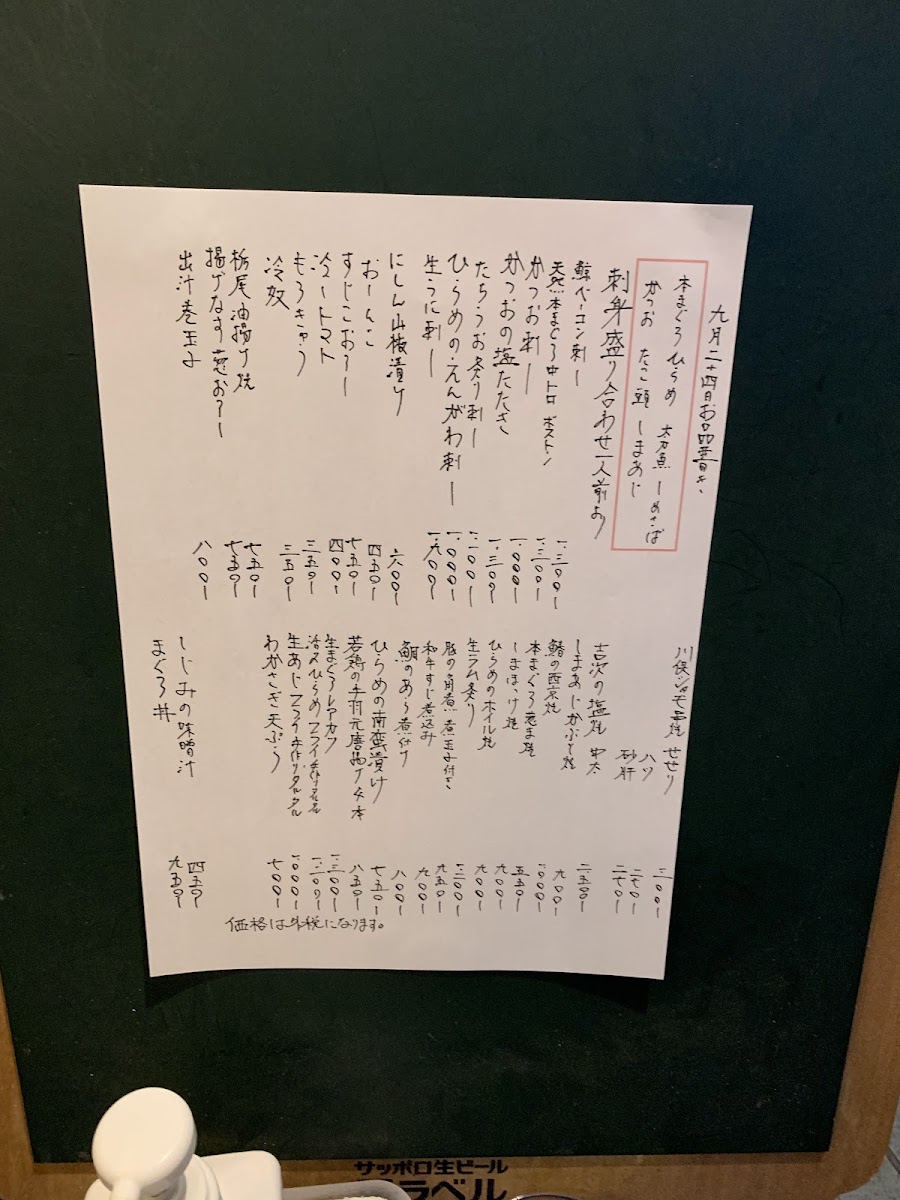 九月二十四日お品書き
本まぐろ ひらめ 太刀魚 しめさば
かつお たこ頭 しまあじ
刺身盛り合わせ一人前より
鯨ベーコン刺し 一、三〇〇ー
天然本まぐろ中トロ ボストン 一、三〇〇ー
かつお刺し 一、〇〇〇ー
かつおの塩たたき 一、三〇〇ー
たちうお炙り刺し 一、一〇〇ー
ひらめのえんがわ刺し 一、〇〇〇ー
生うに刺し 一、九〇〇ー
にしん山椒漬け 六〇〇ー
おしんこ 四五〇ー
すじこおろし 七五〇ー
冷しトマト 四〇〇ー
もろきゅう 三五〇ー
冷奴 三五〇ー
栃尾油揚げ焼 七五〇ー
揚げなす葱おろし 七五〇ー
出汁巻玉子 八〇〇ー
川俣シャモ串焼 せせり 三〇〇ー
ハツ 二七〇ー
砂肝 二七〇ー
吉次の塩焼 中太 二、五〇〇ー
しまあじかぶと焼 九〇〇ー
鰆の西京焼 一、〇〇〇ー
本まぐろ葱ま焼 五五〇ー
しまほっけ焼 九〇〇ー
ひらめのホイル焼 九〇〇ー
生ラム炙り 一、三〇〇ー
豚の角煮 煮玉子付き 九五〇ー
和牛すじ煮込み 九〇〇ー
鯛のあら煮付け 八〇〇ー
ひらめの南蛮漬け 七五〇ー
若鶏の手羽元唐揚げ4本 八五〇ー
生まぐろレアカツ 一、三〇〇ー
活〆ひらめフライ手作りタルタル 一、三〇〇ー
生あじフライ手作りタルタル 一、〇〇〇ー
わかさぎ天ぷら 七〇〇ー
しじみの味噌汁 四五〇ー
まぐろ丼 九五〇ー
価格は外税になります。
サッポロ生ビール
ラベル